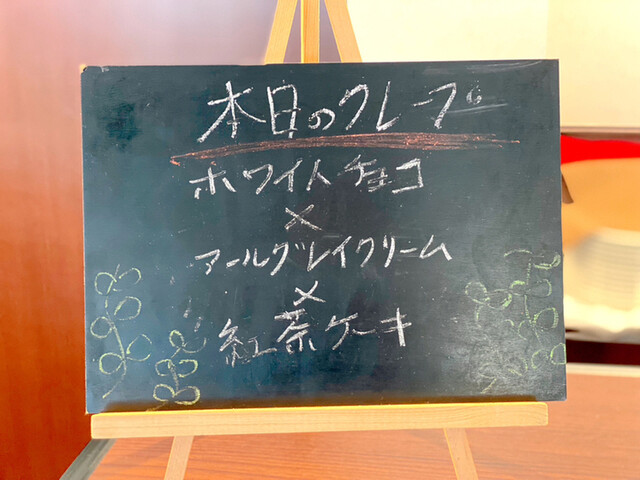 本日のクレープ
ホワイトチョコ
×
アールグレイクリーム
×
紅茶ケーキ